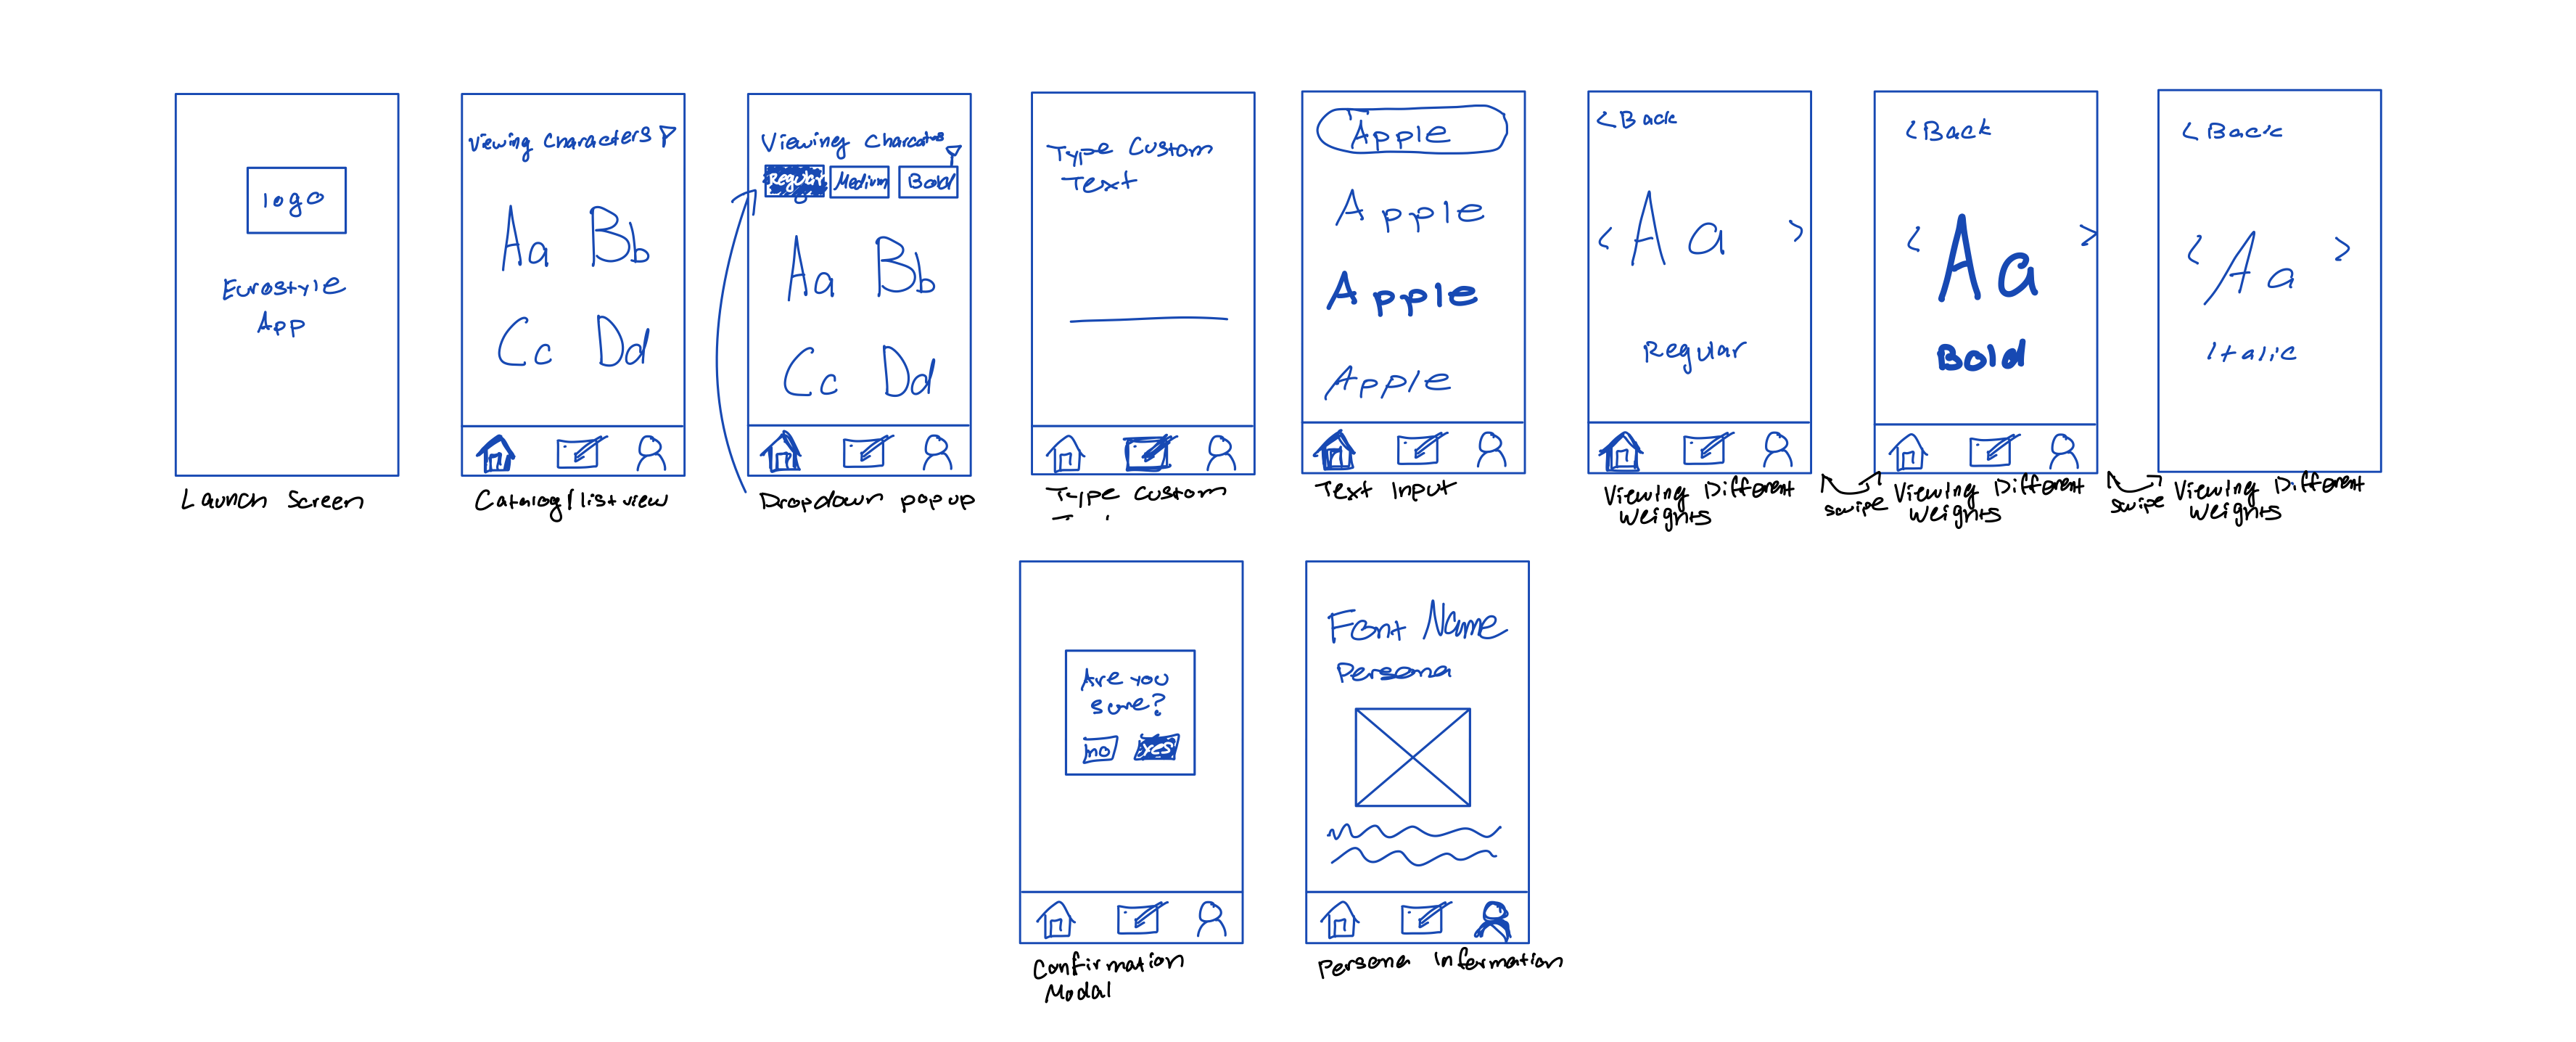 logo
Eurostyle
App
Launch Screen
Viewing Characters
Aa Bb
Cc Dd
Catalog/list view
Viewing
Regular Medium Bold
Aa Bb
Cc Dd
Dropdown pop up
Type Custom
Text
Type Custom
Apple
Apple
Apple
Apple
Text Input
< Back
< Aa >
Regular
Viewing Different
Weights
swipe
< Back
< Aa >
Bold
Viewing Different
Weights
swipe
< Back
< Aa >
Italic
Viewing Different
Weights
Are you
sure?
no yes
Confirmation
Modal
Font Name
Persona
Persona Information